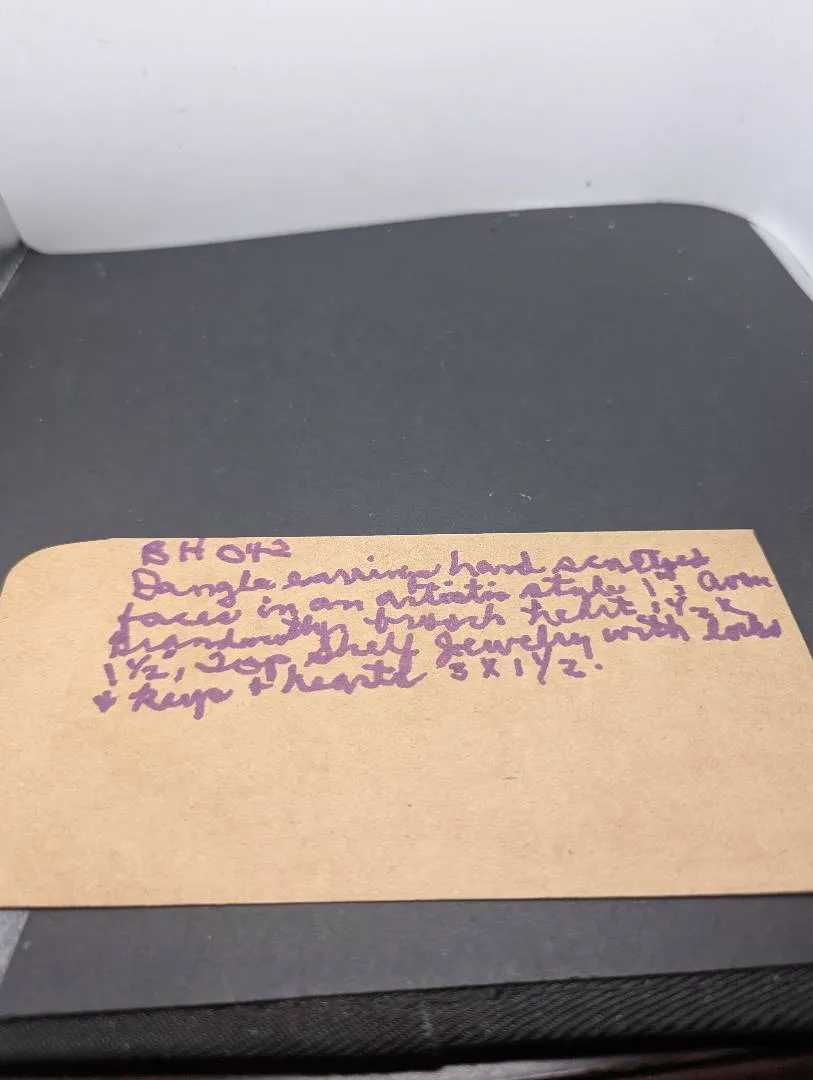 BH 042
Dangle earrings hand sculpted
faces in an artistic style 1", Avon
brooch heart 1 1/2 x
1 1/2, Top Shelf Jewelry with locks
+ keys + hearts 3 x 1 1/2.